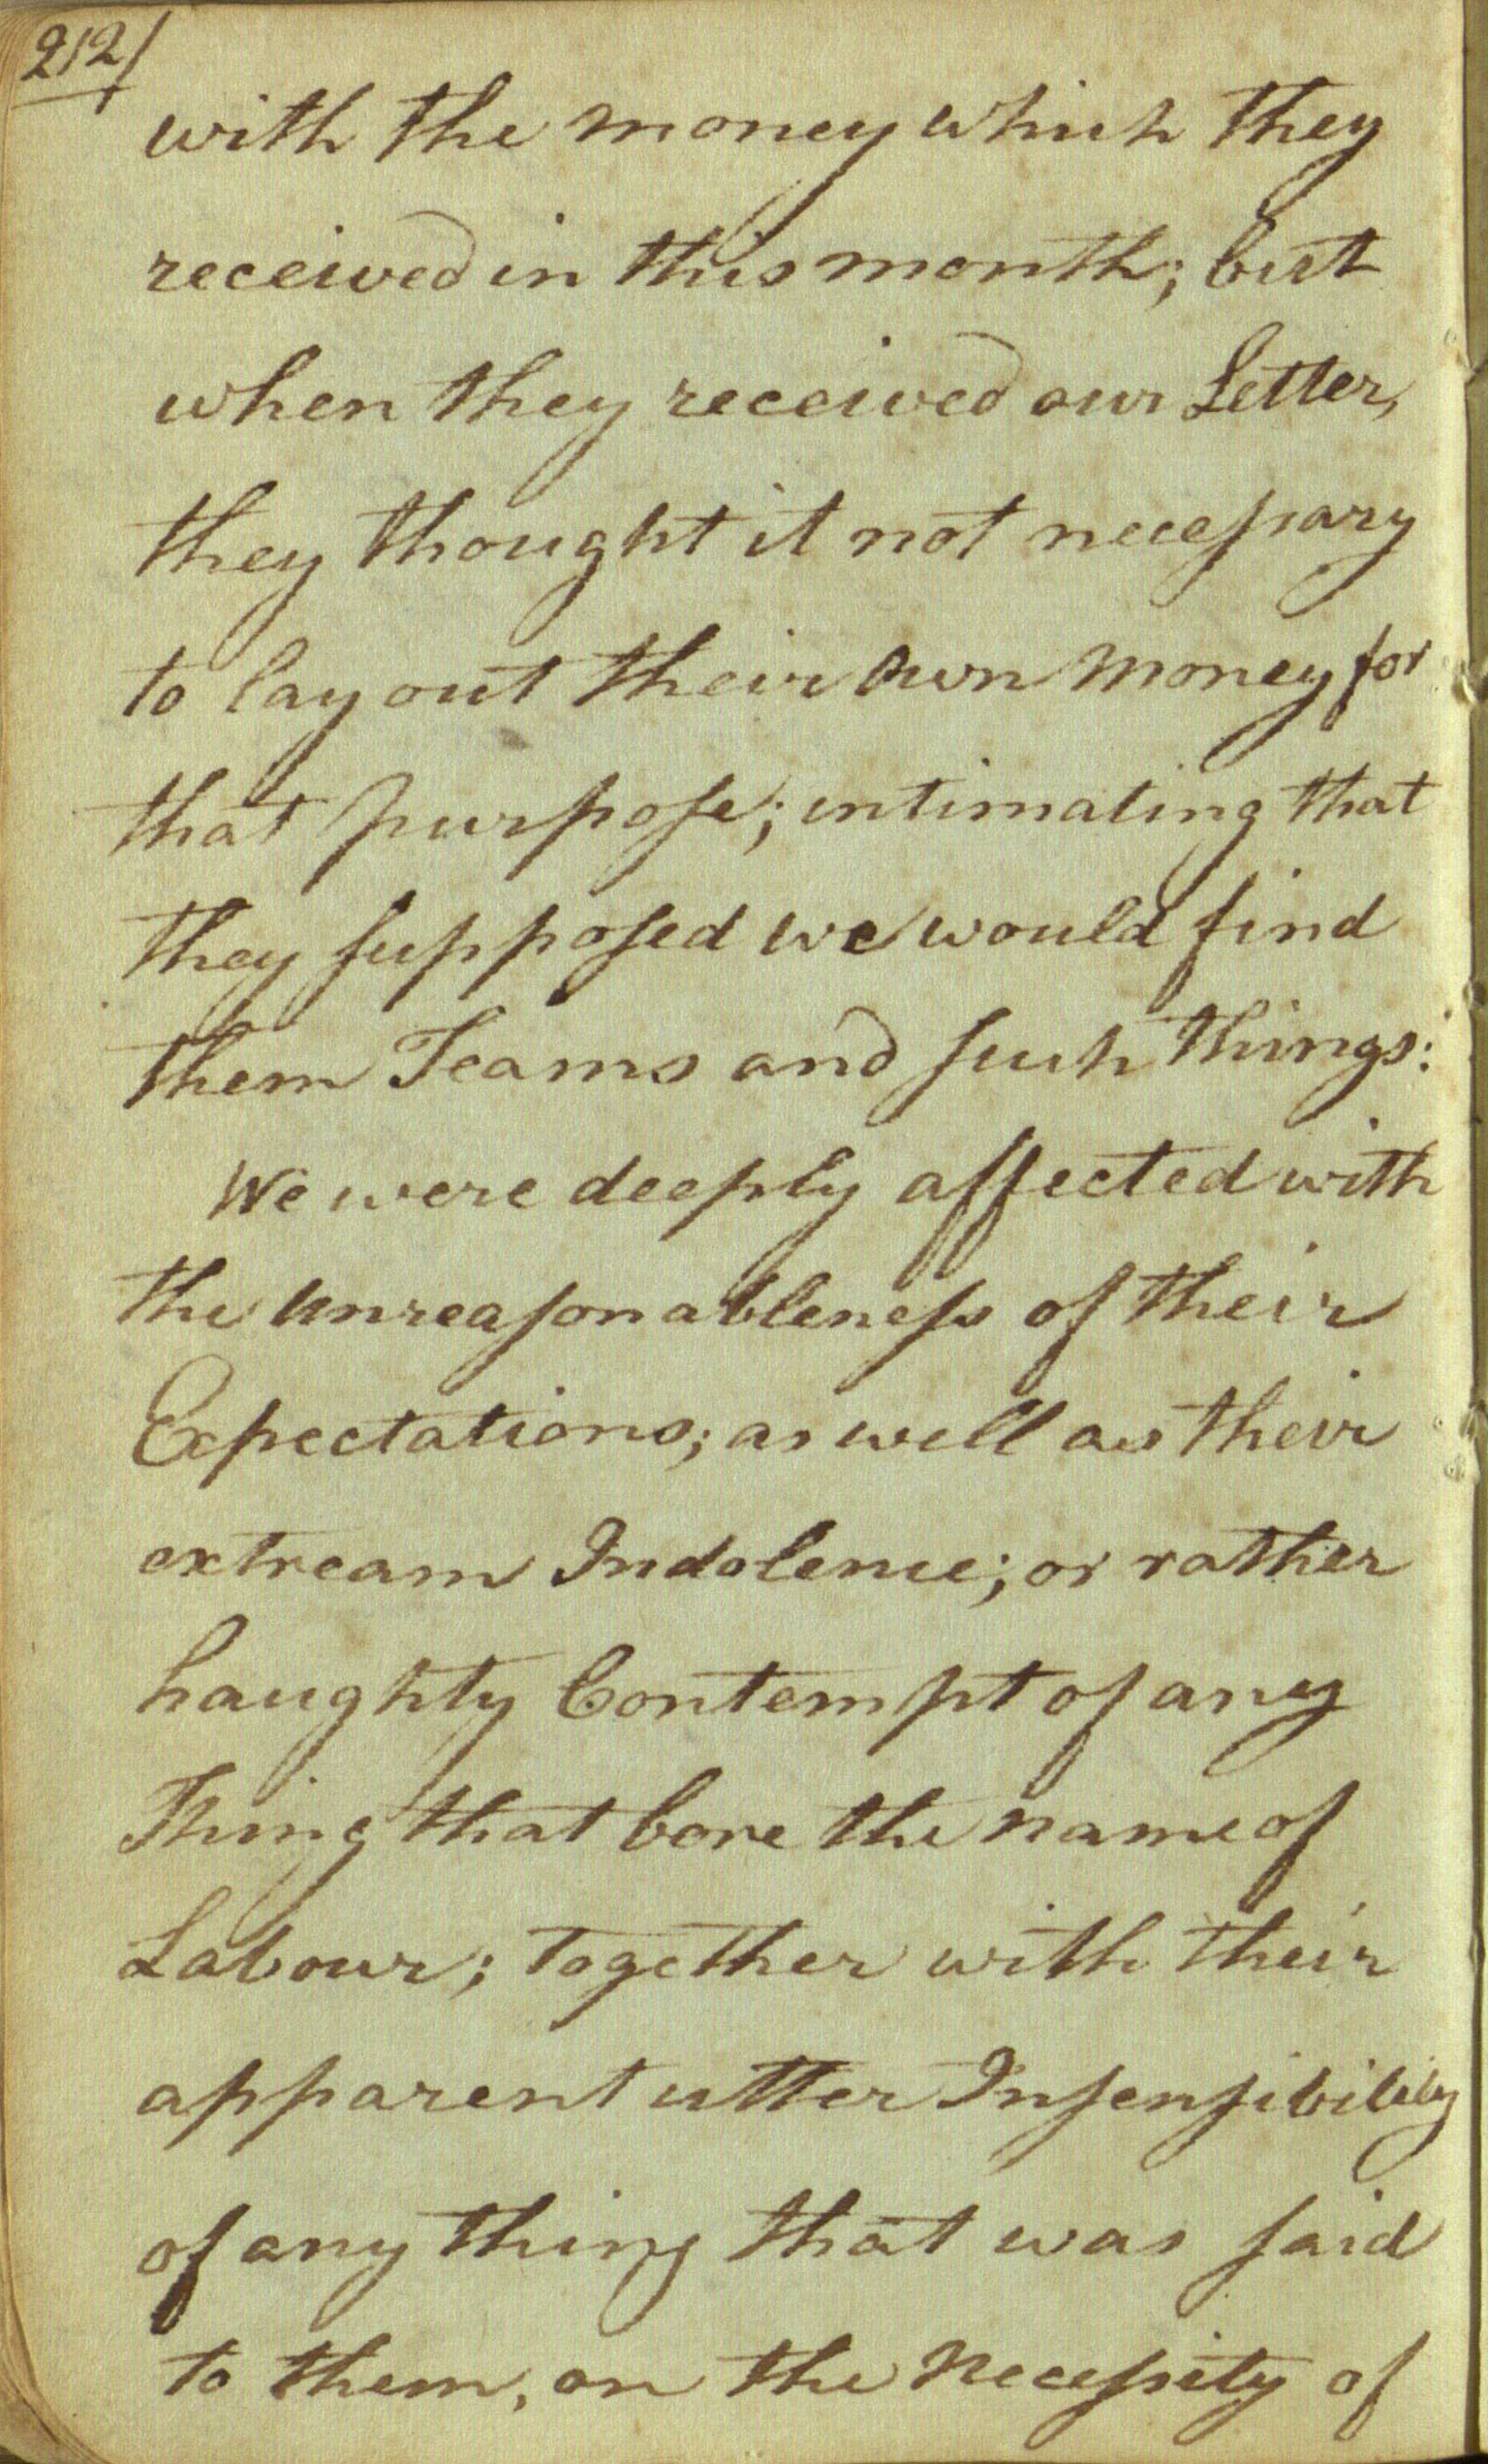 212/
with the money which they
received in this month; but
when they received our Letter,
they thought it not neceſsary
to lay out their own money for
that purpoſe; intimating that
they ſuppoſed we would find
them Teams and ſuch things:
We were deeply affected with
the unreaſonableneſs of their
Expectations; as well as their
extream Indolence; or rather
haughty Contempt of any
Thing that bore the name of
Labour; together with their
apparent utter Inſenſibility
of any thing that was ſaid
to them, on the Neceſsity of